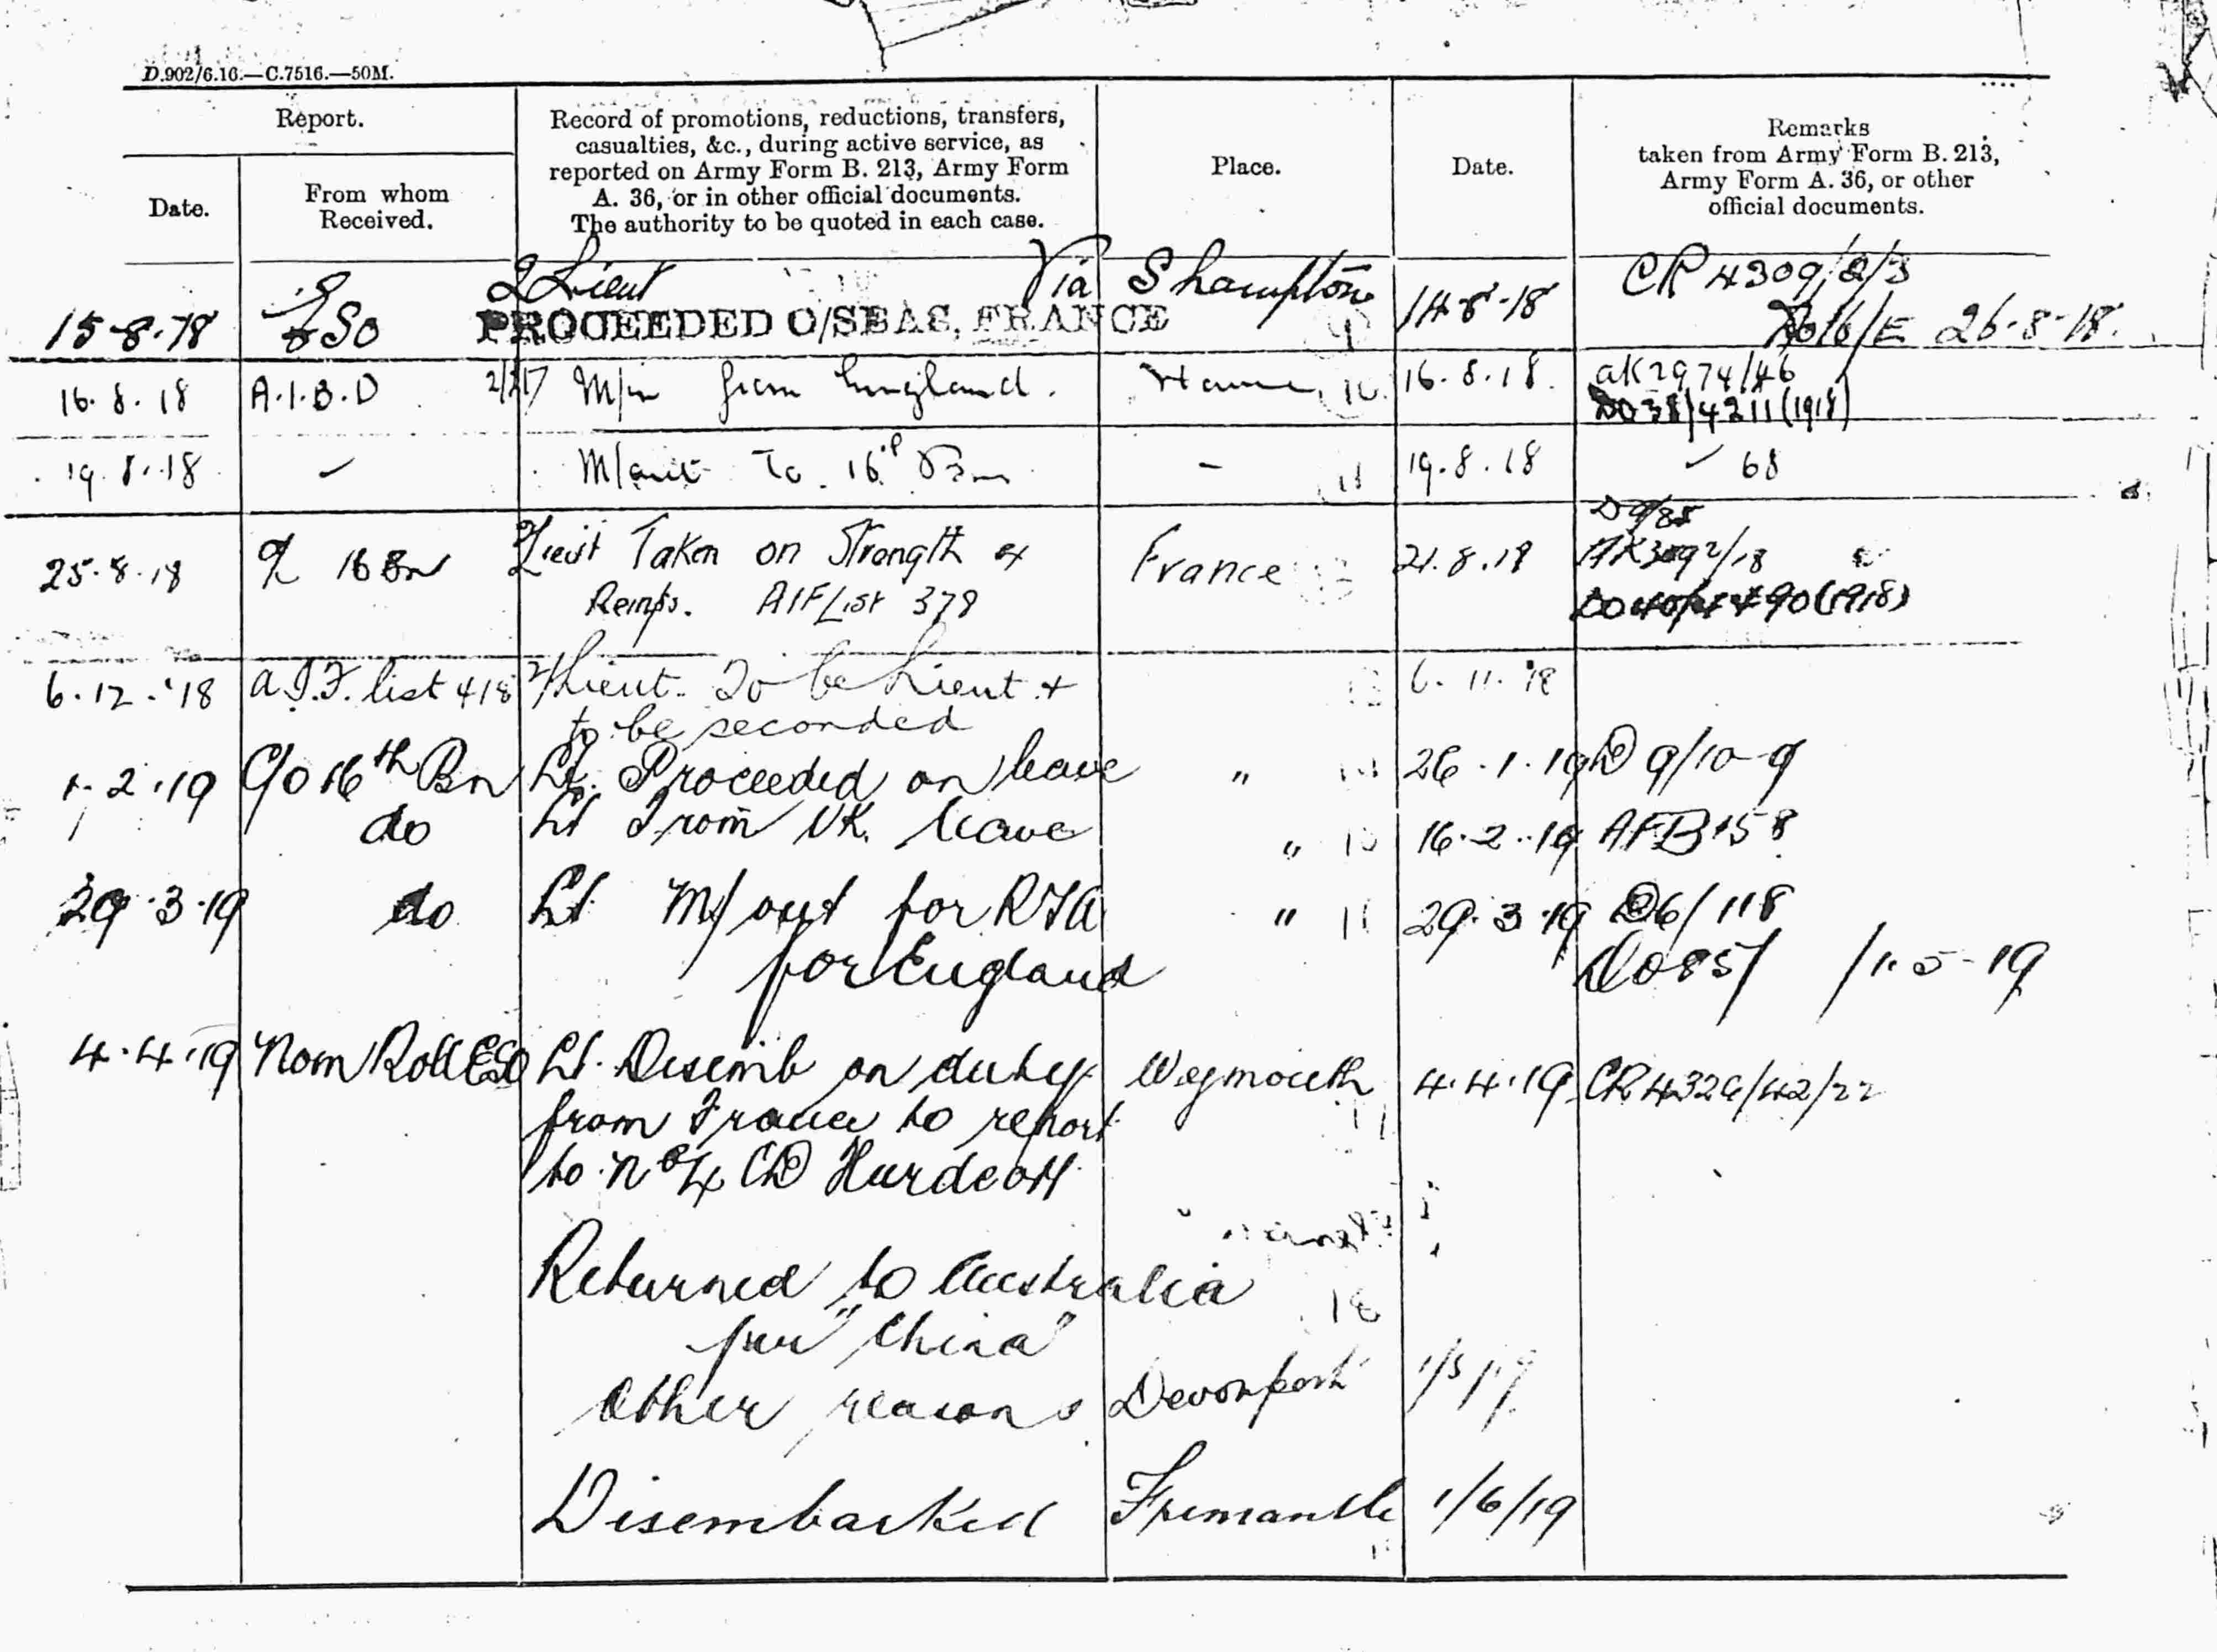 D.902/6.16.—C.7516.—50M.
Report.
Date.
From whom
Received.
Record of promotions, reductions, transfers,
casualties, &c., during active service, as
reported on Army Form B. 213, Army Form
A. 36, or in other official documents.
The authority to be quoted in each case.
Place.
Date.
Remarks
taken from Army Form B. 213,
Army Form A. 36, or other
official documents.
2 Lieut Via S'hampton CR 4309/2/3
15-8-18 ESO PROCEEDED O/SEAS, FRANCE 14-8-18 26-8-18.
16.8.18 A.I.B.D M/in from England. Havre 16.8.18. AK2974/46
DO38/4211(1918)
19.8.18 M/out To 16th Bn - 19.8.18 68
D9/85
25.8.18 16 Bn Lieut Taken on Strength ex France 21.8.18
Reinfs. AIF List 378 (1918)
6.12.'18 A.I.F. list 418 2/Lieut. To be Lieut & 6.11.18
to be seconded
1.2.19 C/O 16th Bn Lt. Proceeded on leave " 26.1.19 D 9/10-9
do Lt From UK. leave " 16.2.19 AFB158
29.3.19 do Lt M/out for RTA " 29.3.19 D6/118
for England DO85/ /1.5-19
4.4.19 Nom Roll ESO Lt. Disemb on duty Weymouth 4.4.19 CR4326/42/22
from France to report
to No 4 CD Hurdcott
Returned to Australia
per "China"
Other reasons Devonport 1/5/19
Disembarked Fremantle 1/6/19